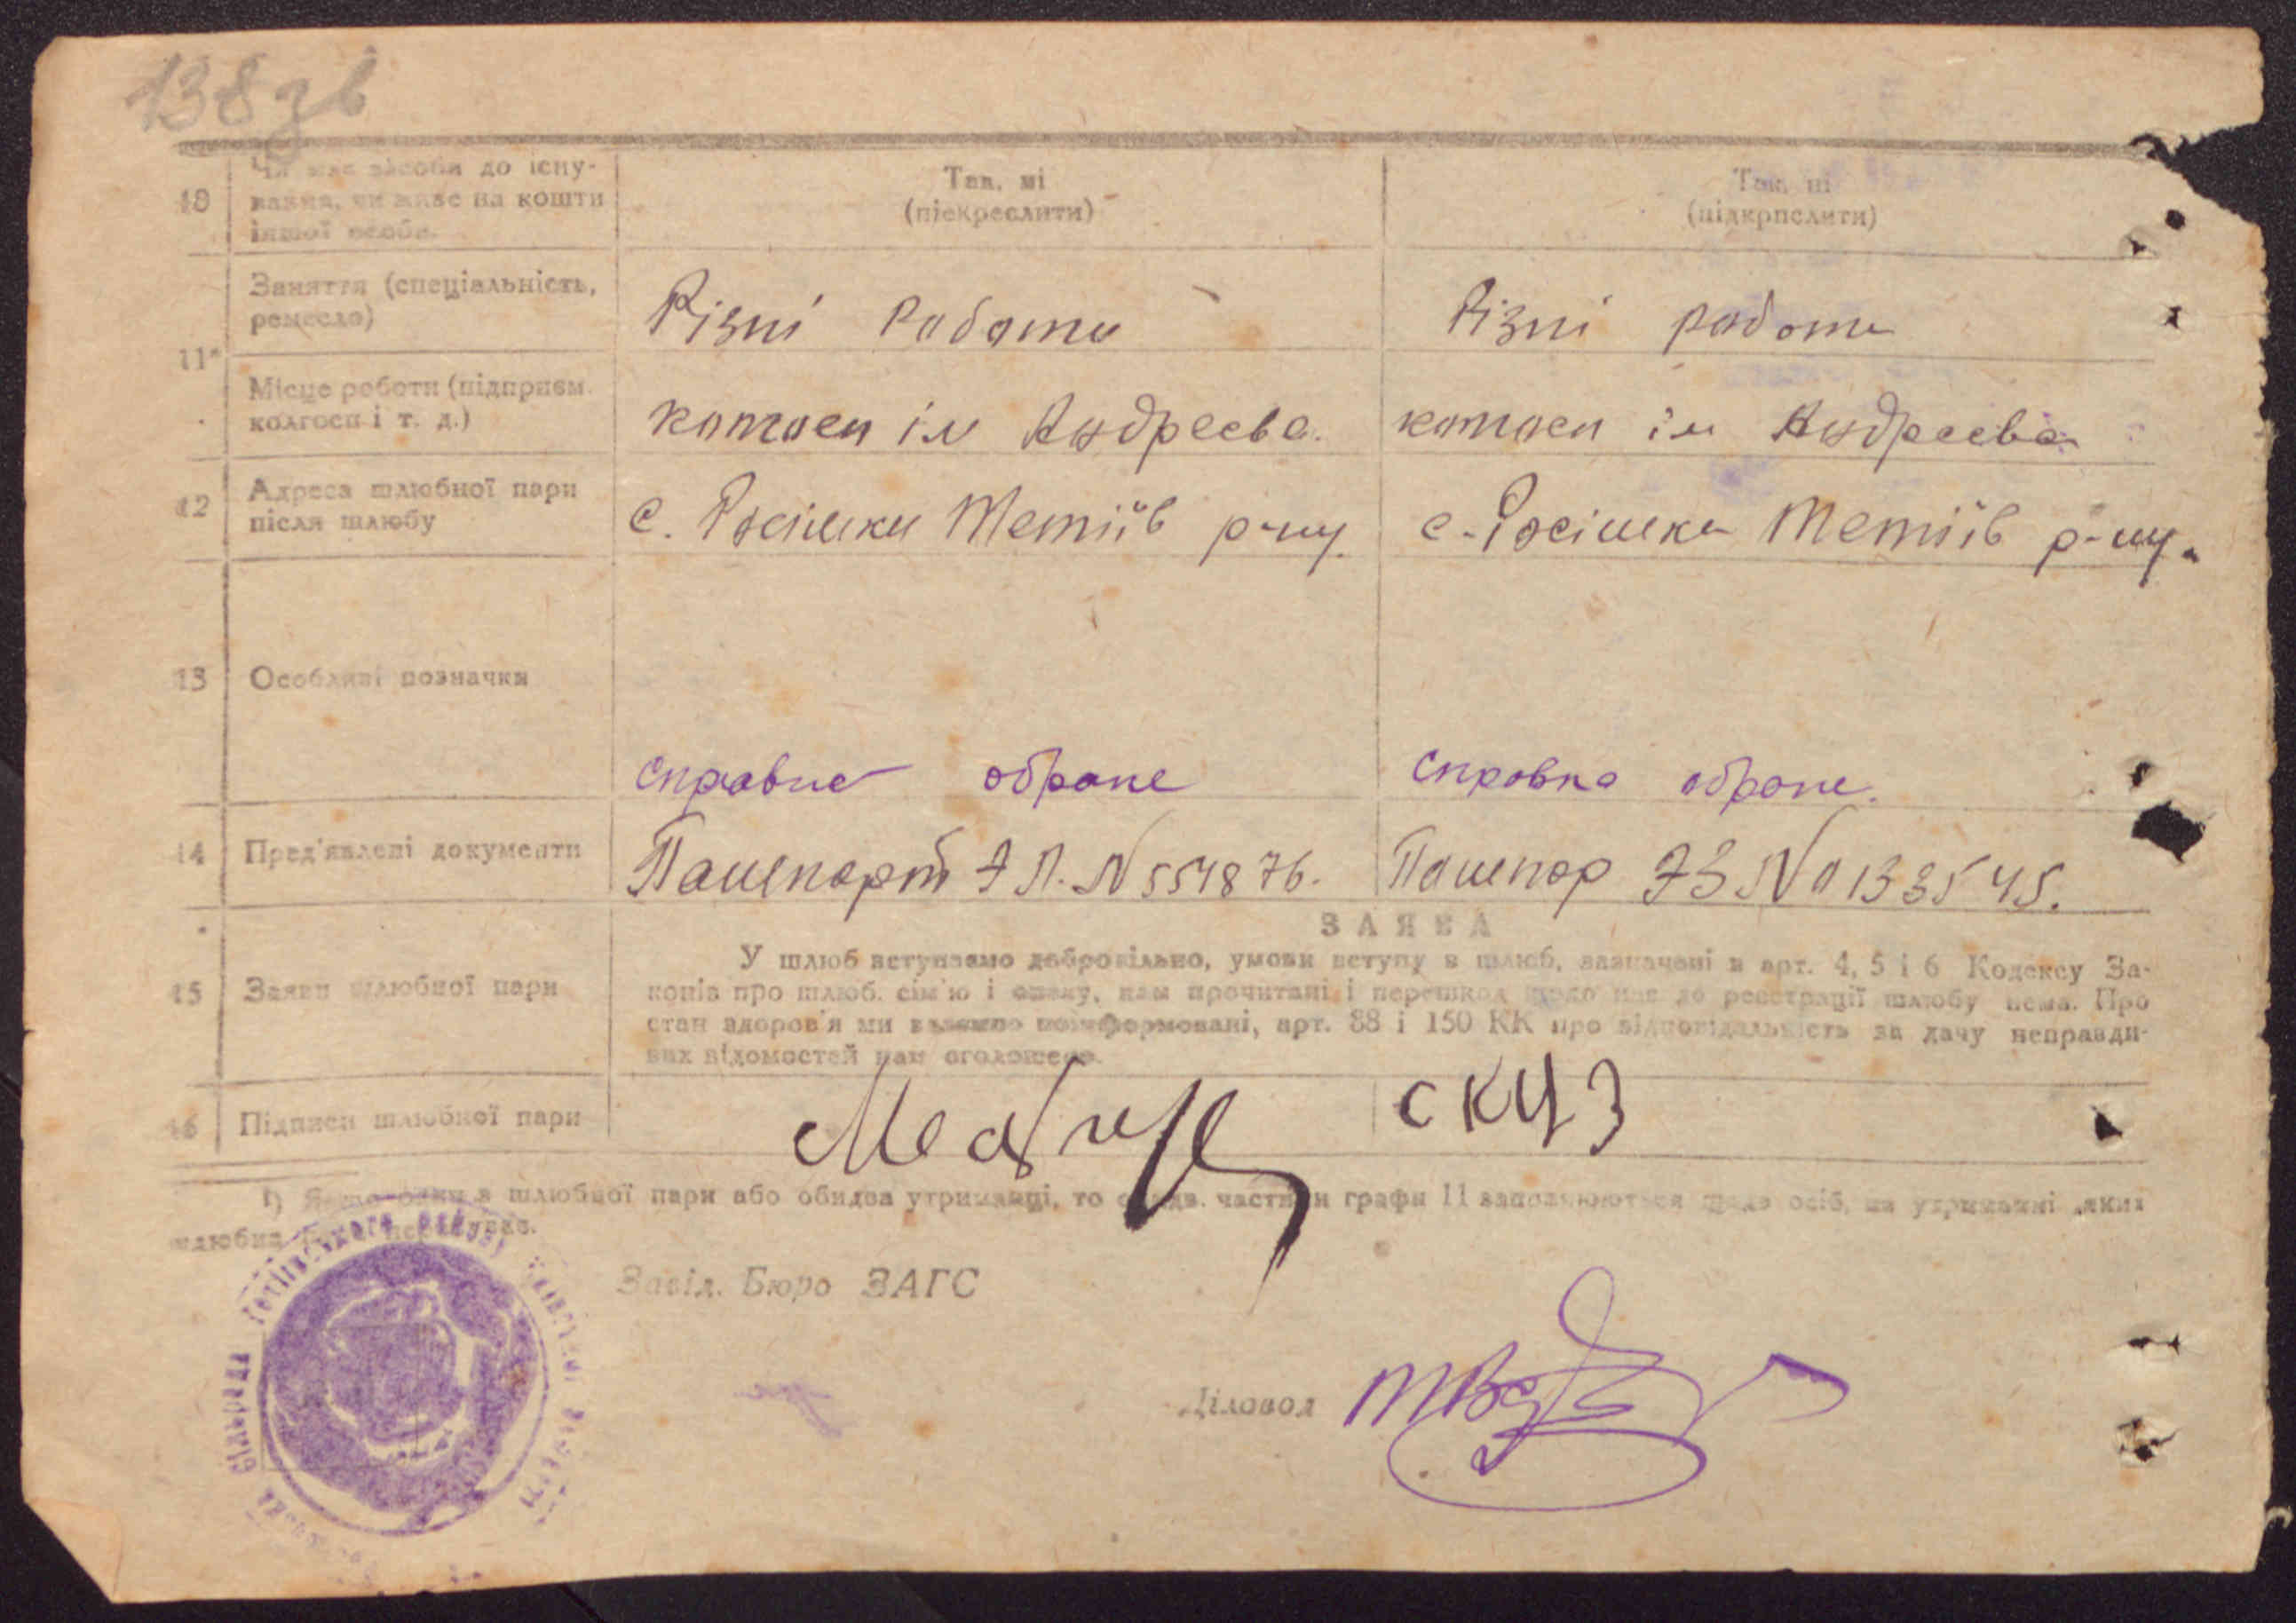 138 зв
10 Чи має засоби до існу-
вання, чи живе на кошти
іншої особи.
Так, ні
(піекреслити)
Так, ні
(підкрпслити)
11
Заняття (спеціальність,
ремесло)
Різні работи
Різні работи
Місце роботи (підприєм.
колгосп і т. д.)
колгосп ім Андреєва.
колгосп ім Андреєва
12 Адреса шлюбної пари
після шлюбу
с. Росішки Тетіїв р-ну.
с. Росішки Тетіїв р-ну.
13 Особливі позначки
справка
справка
14 Пред'явлені документи
Пашпорт
Пашпор
ЗАЯВА
15 Заяви шлюбної пари
У шлюб вступаємо добровільно, умови вступу в шлюб, зазначені в арт. 4, 5 і 6 Кодексу За-
конів про шлюб. сім'ю і опіку, нам прочитані і перешкод щодо нас до реєстрації шлюбу нема. Про
стан здоров'я ми взаємно поінформовані, арт. 88 і 150 КК про відповідальність за дачу неправди-
вих відомостей нам оголошено.
16 Підписи шлюбної пари
1) Якщо один з шлюбної пари або обидва утриманці, то частини графи 11 заповнюються щодо осіб, на утриманні яких
шлюбна перебуває.
Завід. Бюро ЗАГС
Діловод